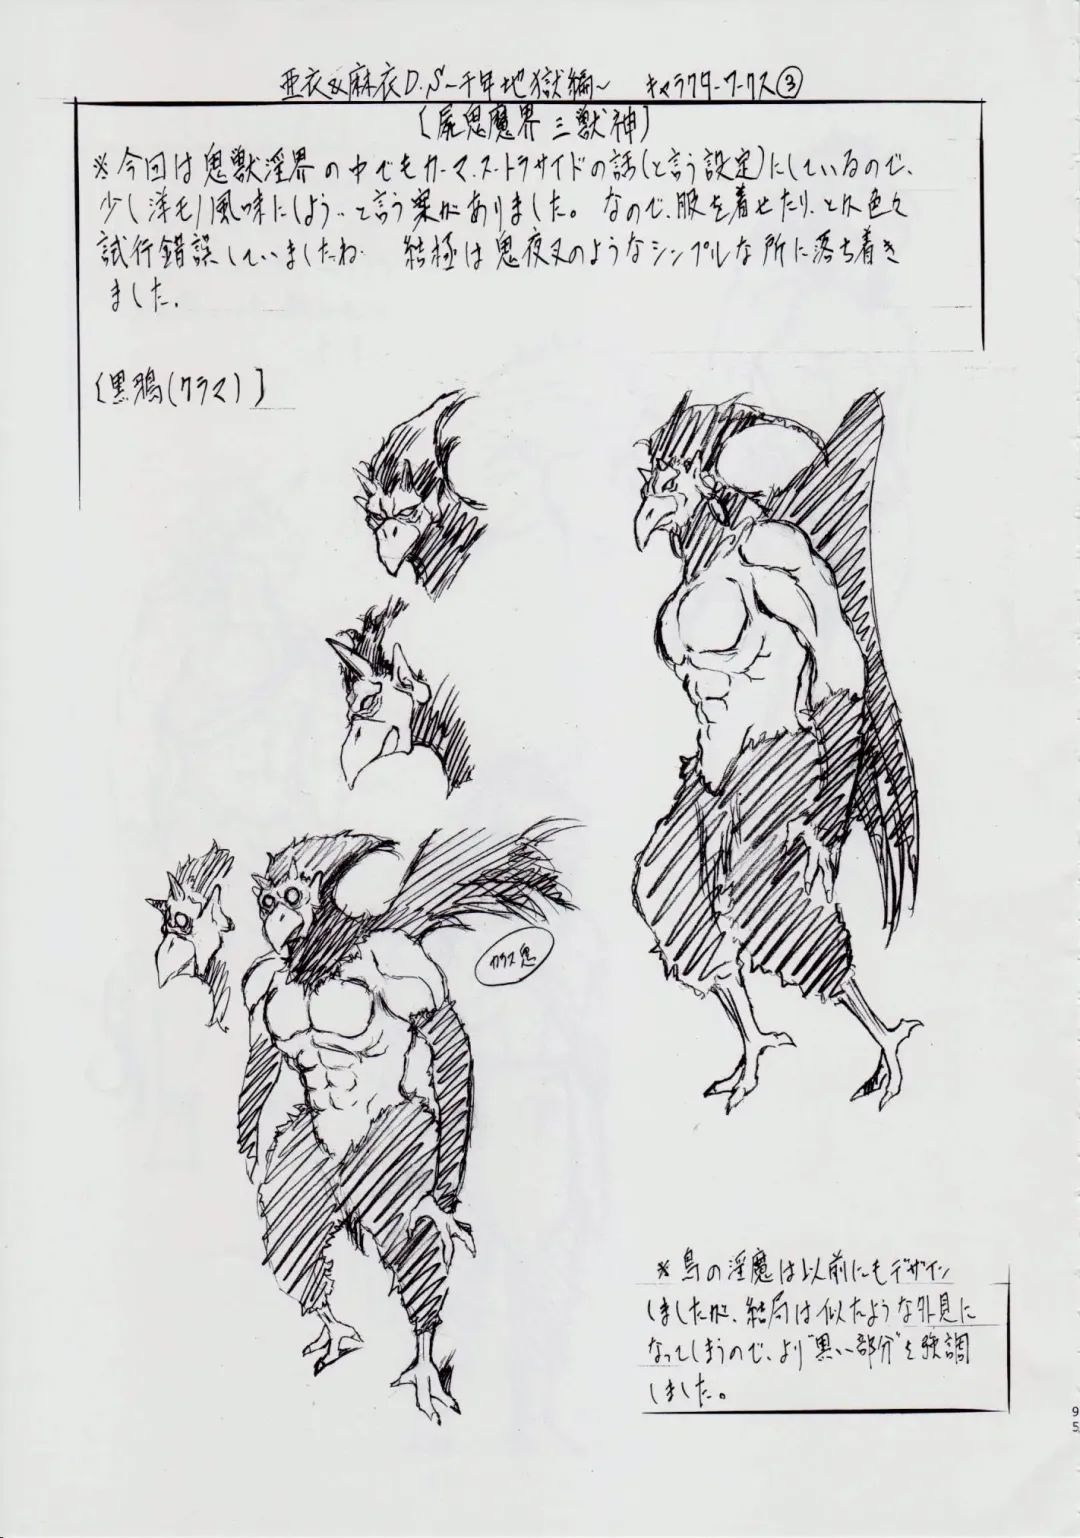 亜衣&麻衣D.S～千年地獄編～ キャラクターワークス③
〔屍鬼魔界三獣神〕
※今回は鬼獣淫界の中でもカーマ・スートラサイドの話(と言う設定)にしているので、
少し洋モノ風味にしよう…と言う案がありました。なので、服を着せたり、と色々
試行錯誤していましたね 結極は鬼夜叉のようなシンプルな所に落ち着き
ました.
〔黒鴉(クラマ)〕
カラス鬼
※鳥の淫魔は以前にもデザイン
しましたが、結局は似たような外見に
なってしまうので、より"黒い部分"を強調
しました。
95